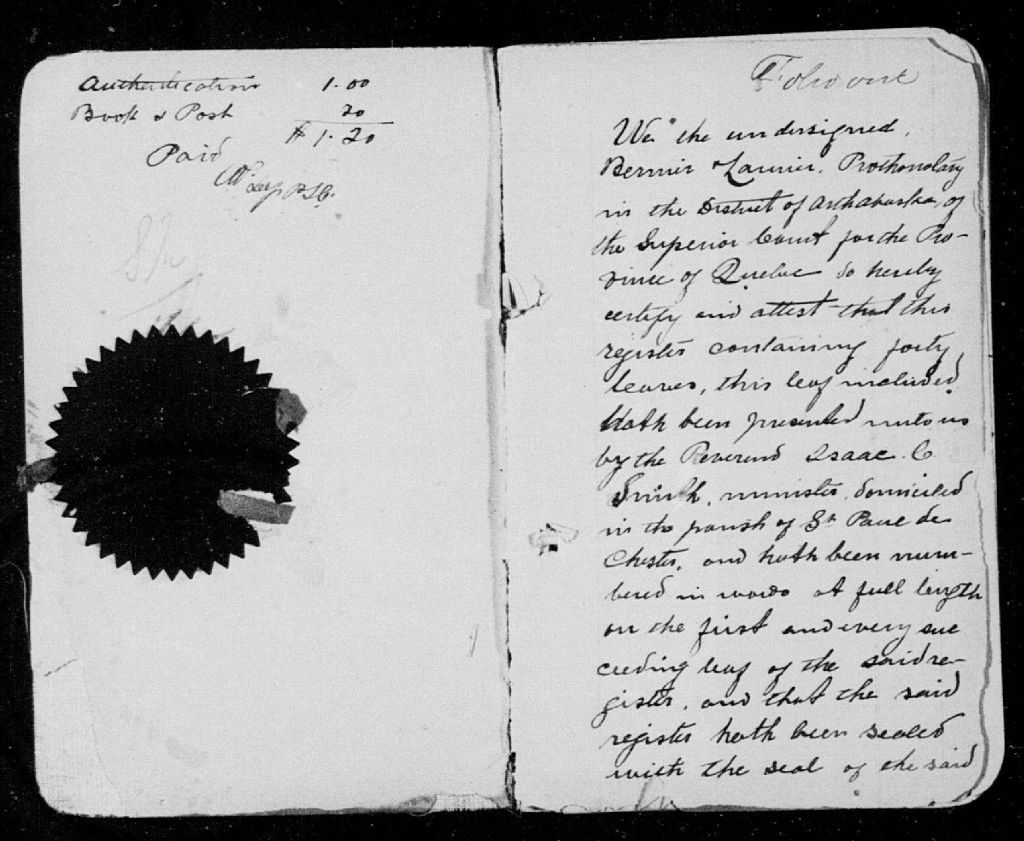 Authentication 1.00
Book & Post 20
$ 1.20
Paid
Folio one
We the undersigned,
Bernier & Laurier, Prothonotary
in the District of Arthabaska, of
the Superior Court for the Pro-
vince of Quebec do hereby
certify and attest that this
register containing forty
leaves, this leaf included,
Hath been presented unto us
by the Reverend Isaac C
Smith, minister, domiciled
in the parish of St Paul de
Chester, and hath been num-
bered in words at full length
on the first and every suc
ceeding leaf of the said re-
gister, and that the said
register hath been sealed
with the seal of the said